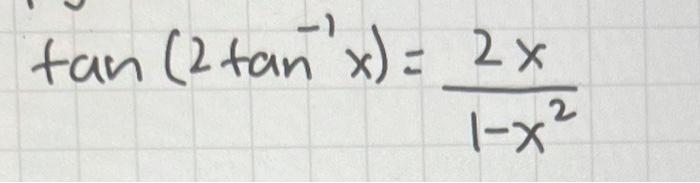 tan (2 tan⁻¹ x) = 2x / 1-x²